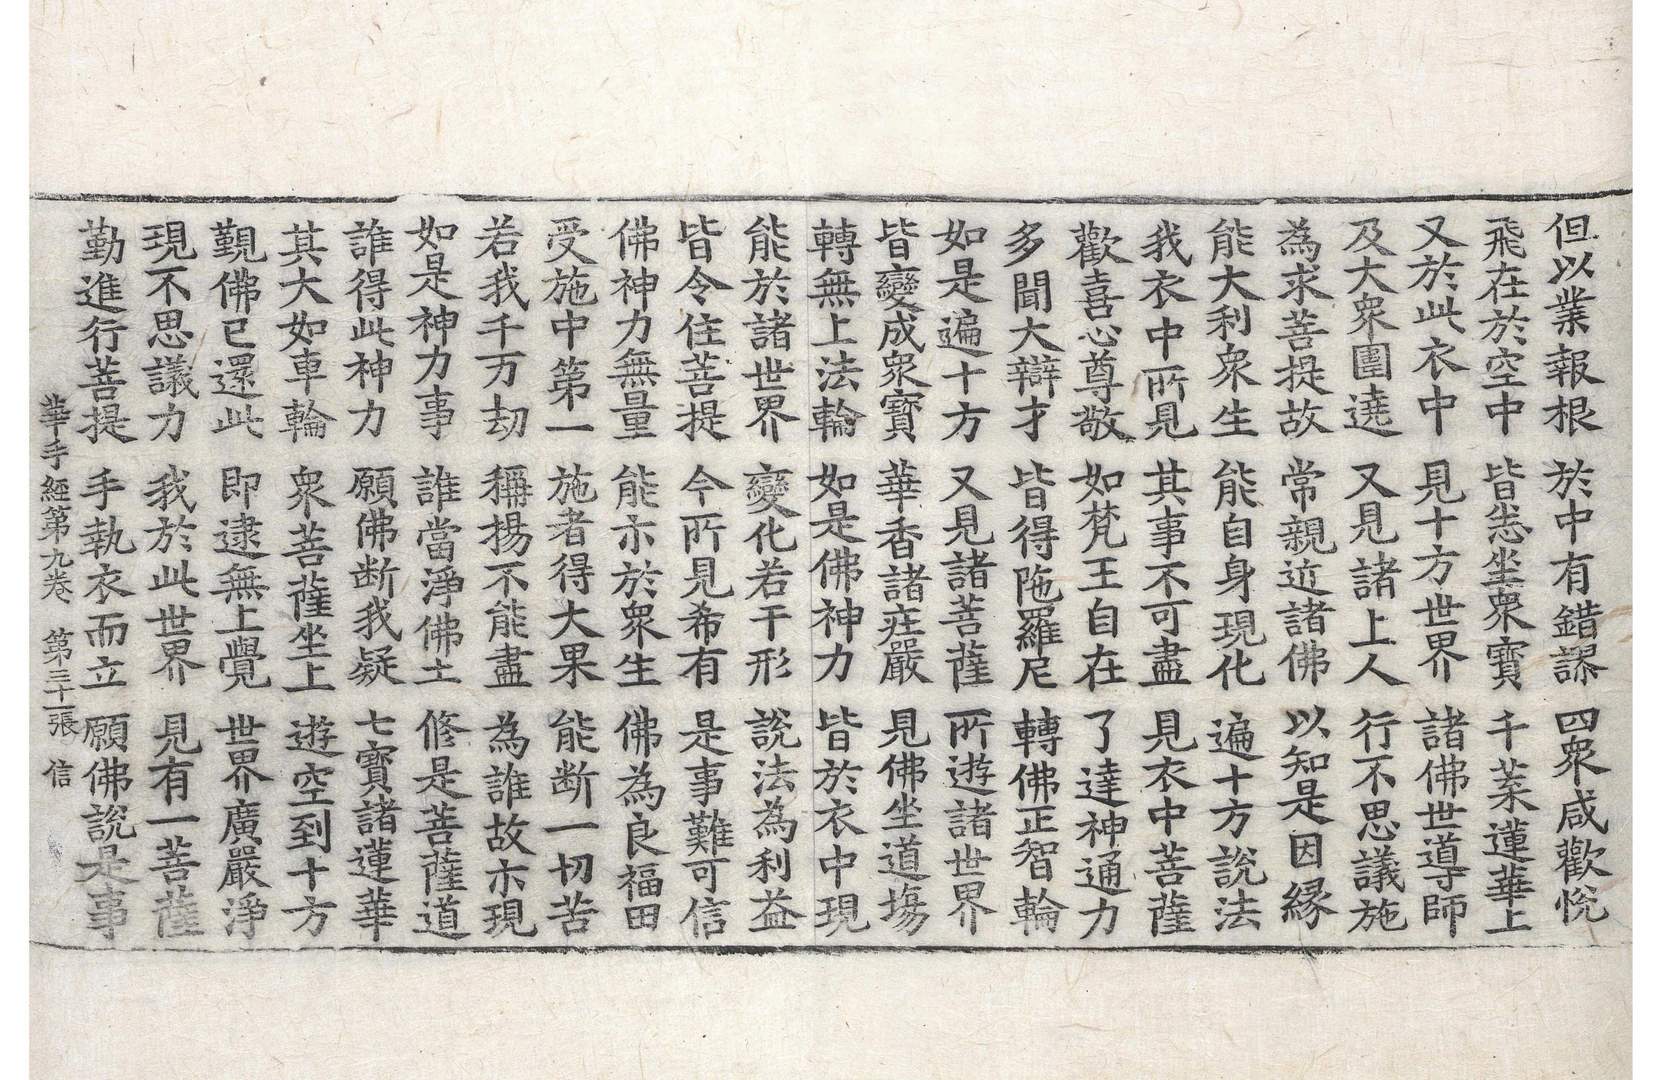 但以業報根　於中有錯謬　四衆咸歡悅
飛在於空中　皆悉坐衆寶　千葉蓮華上
又於此衣中　見十方世界　諸佛世導師
及大衆圍遶　又見諸上人　行不思議施
為求菩提故　常親近諸佛　以知是因緣
能大利衆生　能自身現化　遍十方說法
我衣中所見　其事不可盡　見衣中菩薩
歡喜心尊敬　如梵王自在　了達神通力
多聞大辯才　皆得陁羅尼　轉佛正智輪
如是遍十方　又見諸菩薩　所遊諸世界
皆變成衆寶　華香諸莊嚴　見佛坐道場
轉無上法輪　如是佛神力　皆於衣中現
能於諸世界　變化若干形　說法為利益
皆令住菩提　今所見希有　是事難可信
佛神力無量　能示於衆生　佛為良福田
受施中第一　施者得大果　能断一切苦
若我千万劫　稱揚不能盡　為誰故示現
如是神力事　誰當淨佛土　修是菩薩道
誰得此神力　願佛断我疑　七寶諸蓮華
其大如車輪　衆菩薩坐上　遊空到十方
覲佛已還此　即逮無上覺　世界廣嚴淨
現不思議力　我於此世界　見有一菩薩
勤進行菩提　手執衣而立　願佛說是事
華手經第九卷　第三十一張　信